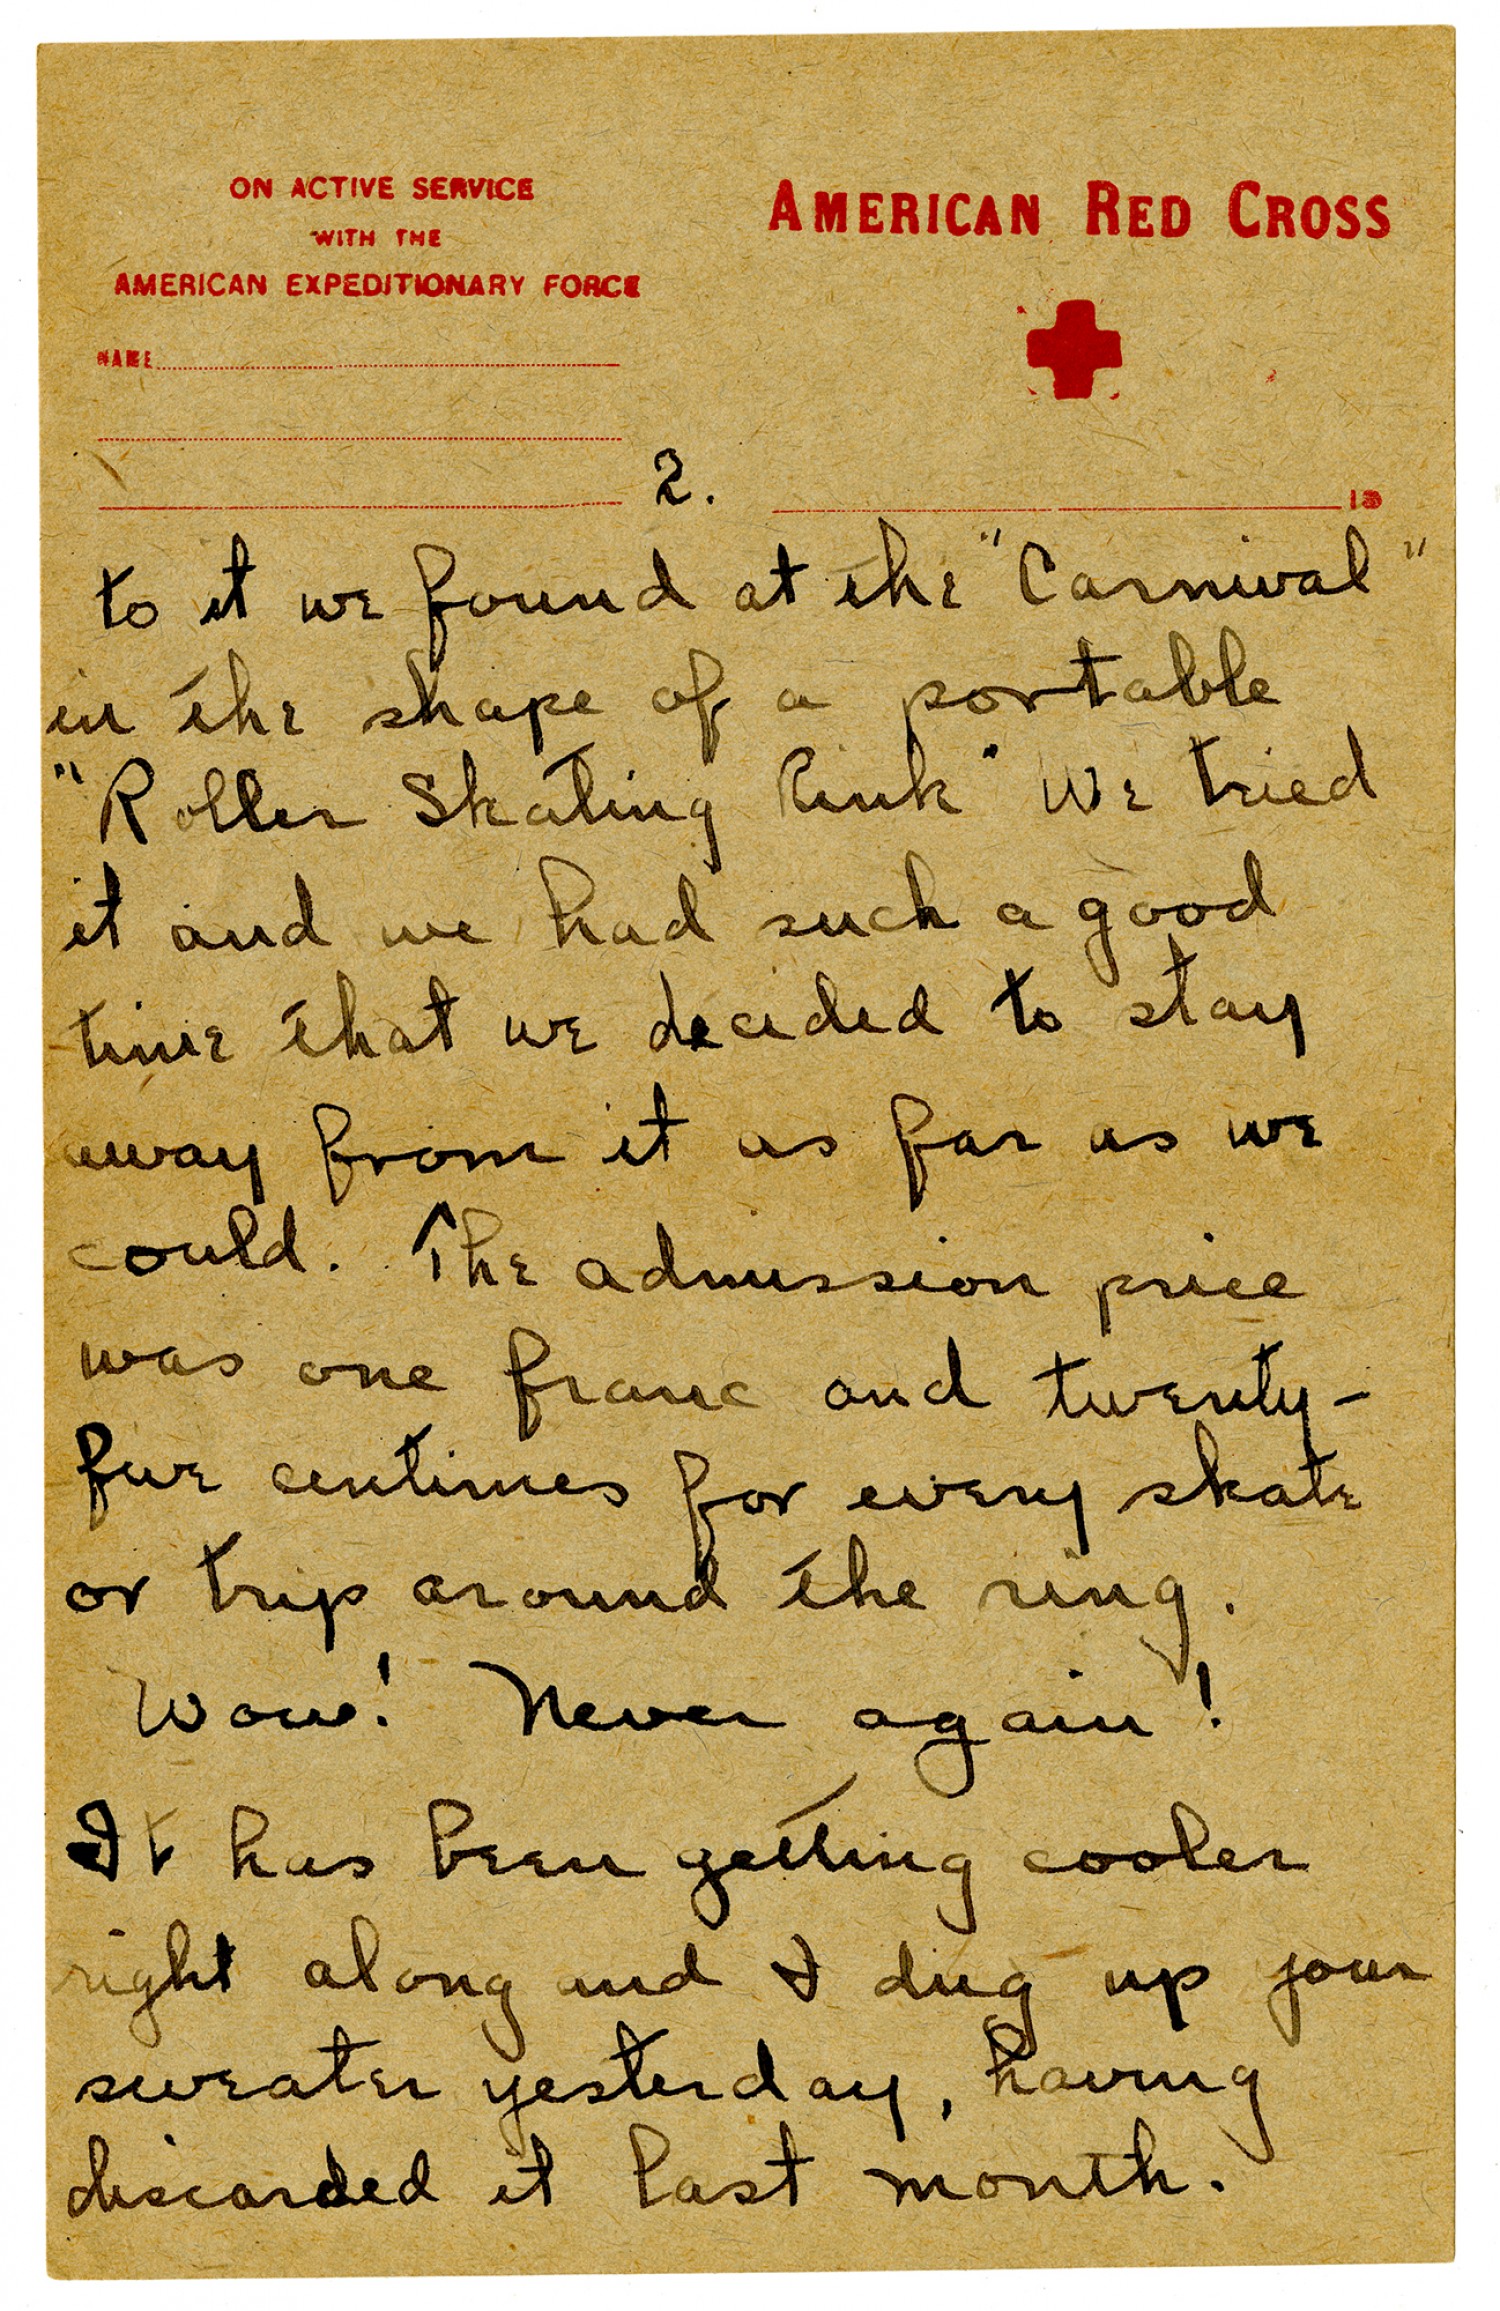 ON ACTIVE SERVICE
WITH THE
AMERICAN EXPEDITIONARY FORCE
AMERICAN RED CROSS
NAME
2.
19
to it we found at the "Carnival"
in the shape of a portable
"Roller Skating Rink" We tried
it and we had such a good
time that we decided to stay
away from it as far as we
could. The admission price
was one franc and twenty-
five centimes for every skate
or trip around the ring.
Wow! Never again!
It has been getting cooler
right along and I dug up your
sweater yesterday, having
discarded it last month.